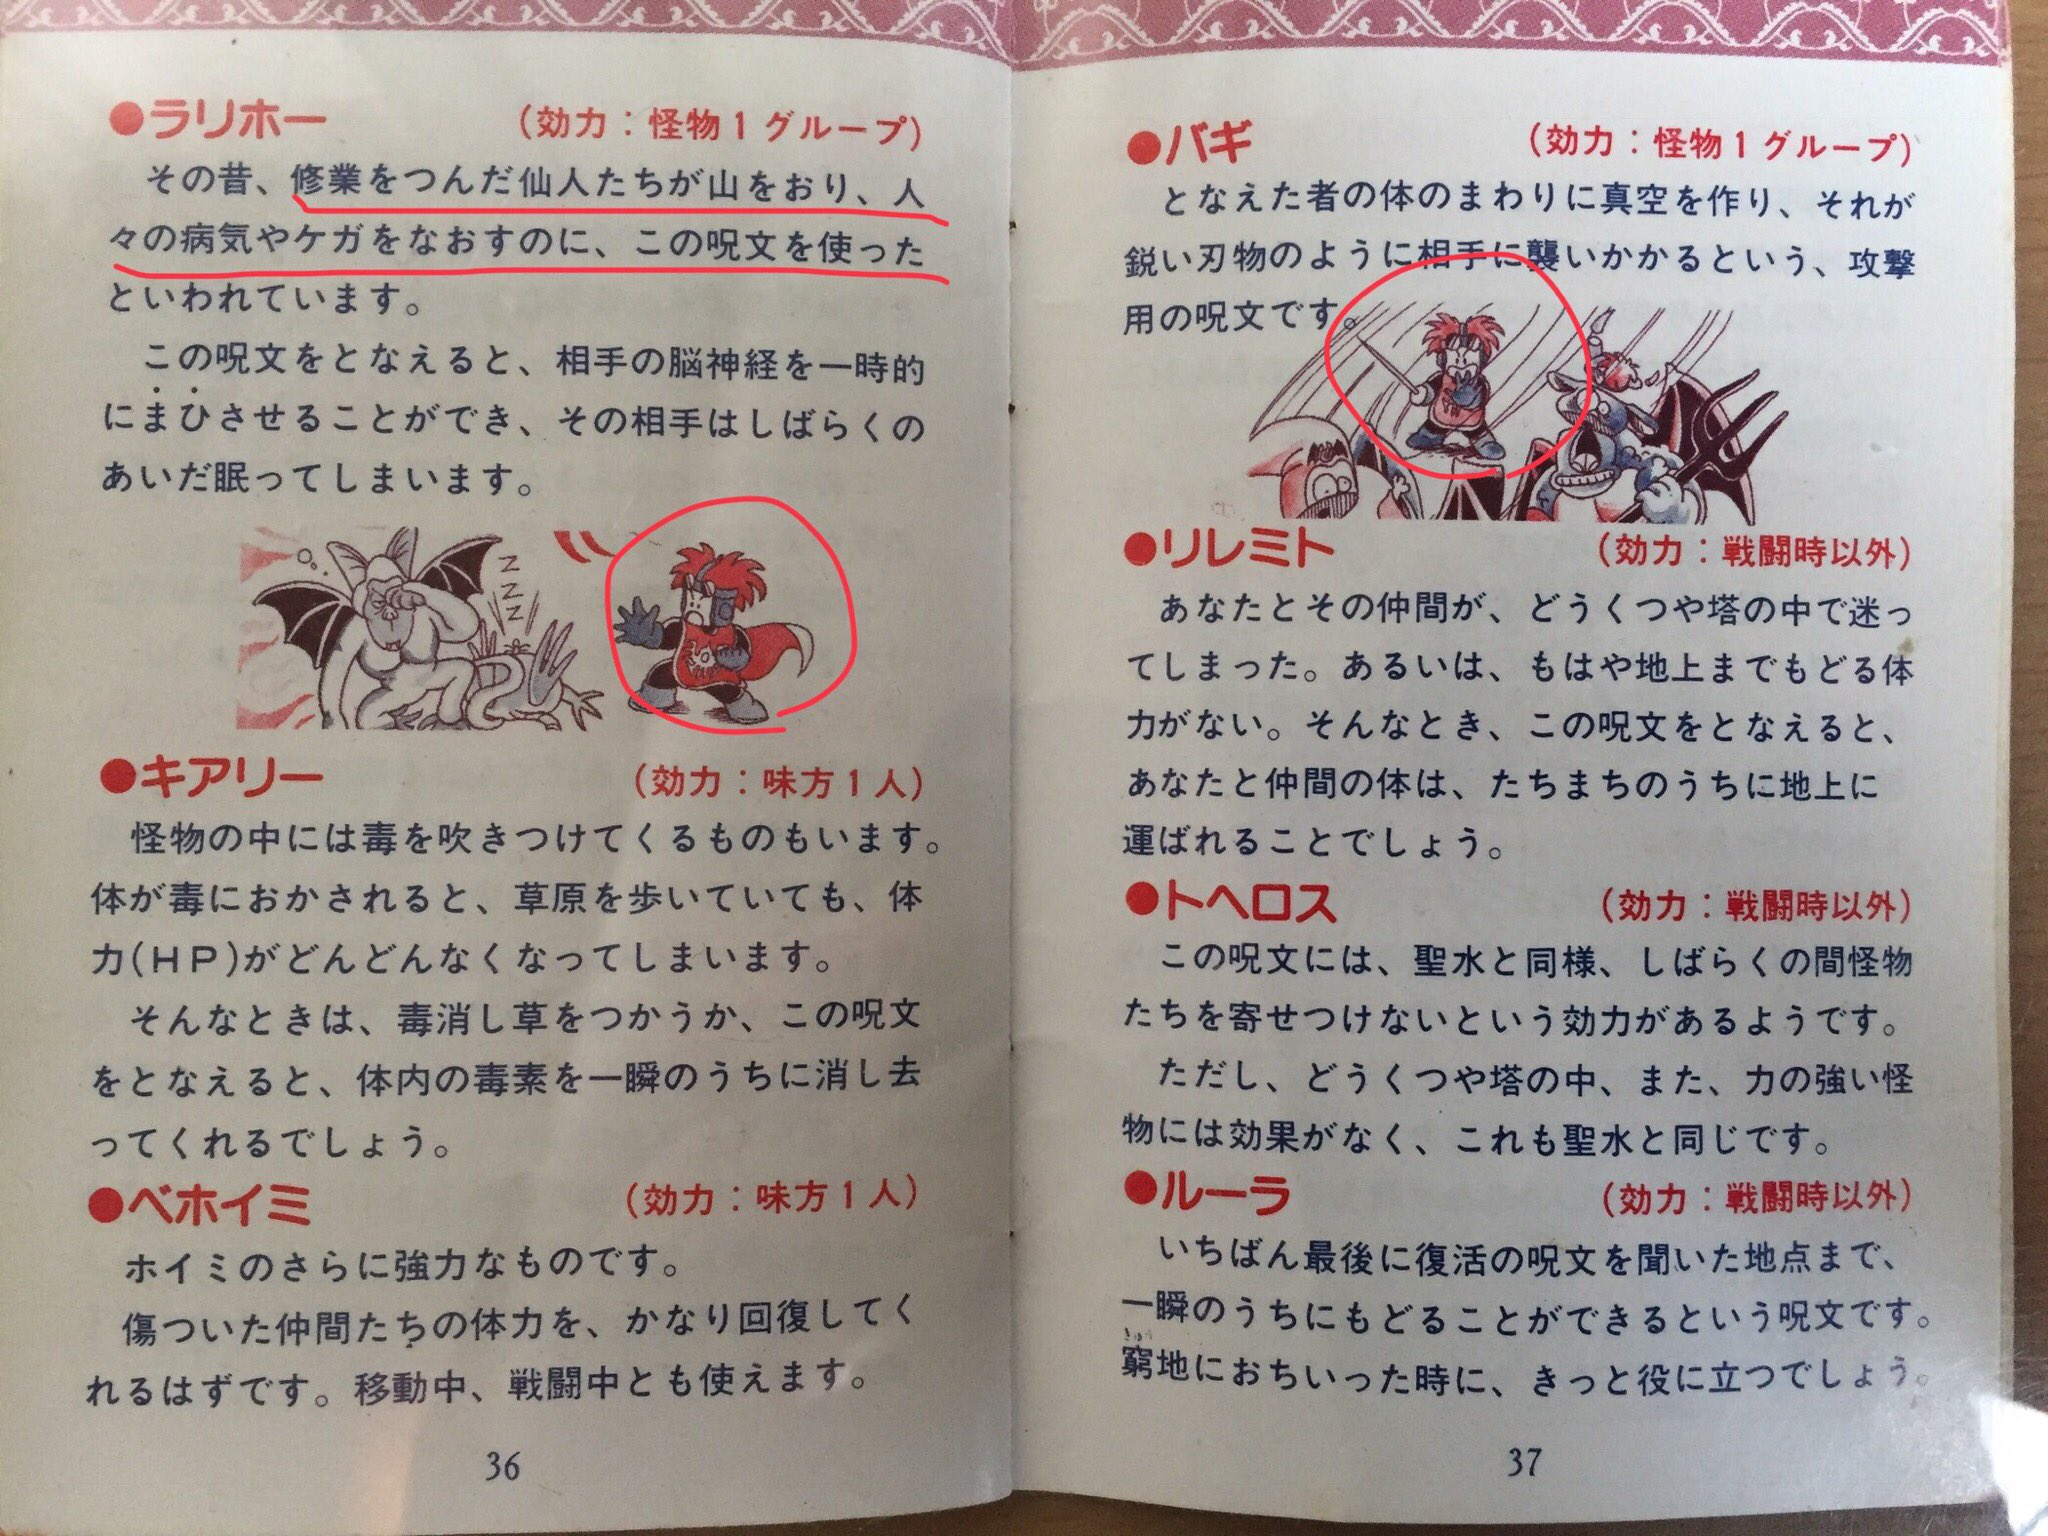 ●ラリホー (効力：怪物1グループ)
その昔、修業をつんだ仙人たちが山をおり、人
々の病気やケガをなおすのに、この呪文を使った
といわれています。
この呪文をとなえると、相手の脳神経を一時的
にまひさせることができ、その相手はしばらくの
あいだ眠ってしまいます。
Z
Z
Z
●キアリー (効力：味方1人)
怪物の中には毒を吹きつけてくるものもいます。
体が毒におかされると、草原を歩いていても、体
力(HP)がどんどんなくなってしまいます。
そんなときは、毒消し草をつかうか、この呪文
をとなえると、体内の毒素を一瞬のうちに消し去
ってくれるでしょう。
●ベホイミ (効力：味方1人)
ホイミのさらに強力なものです。
傷ついた仲間たちの体力を、かなり回復してく
れるはずです。移動中、戦闘中とも使えます。
36
●バギ (効力：怪物1グループ)
となえた者の体のまわりに真空を作り、それが
鋭い刃物のように相手に襲いかかるという、攻撃
用の呪文です。
●リレミト (効力：戦闘時以外)
あなたとその仲間が、どうくつや塔の中で迷っ
てしまった。あるいは、もはや地上までもどる体
力がない。そんなとき、この呪文をとなえると、
あなたと仲間の体は、たちまちのうちに地上に
運ばれることでしょう。
●トヘロス (効力：戦闘時以外)
この呪文には、聖水と同様、しばらくの間怪物
たちを寄せつけないという効力があるようです。
ただし、どうくつや塔の中、また、力の強い怪
物には効果がなく、これも聖水と同じです。
●ルーラ (効力：戦闘時以外)
いちばん最後に復活の呪文を聞いた地点まで、
一瞬のうちにもどることができるという呪文です。
窮地におちいった時に、きっと役に立つでしょう。
37